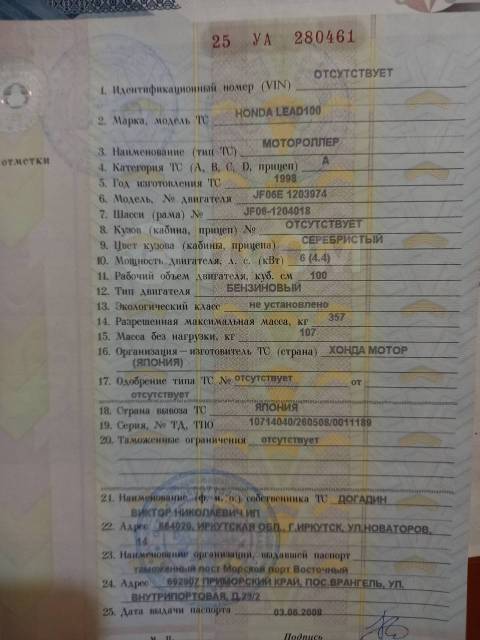 25 УА 280461
отметки
1. Идентификационный номер (VIN) ОТСУТСТВУЕТ
2. Марка, модель ТС HONDA LEAD100
3. Наименование (тип ТС) МОТОРОЛЛЕР
4. Категория ТС (A, B, C, D, прицеп) A
5. Год изготовления ТС 1998
6. Модель, № двигателя JF06E 1203974
7. Шасси (рама) № JF06-1204018
8. Кузов (кабина, прицеп) № ОТСУТСТВУЕТ
9. Цвет кузова (кабины, прицепа) СЕРЕБРИСТЫЙ
10. Мощность двигателя, л. с. (кВт) 6 (4.4)
11. Рабочий объем двигателя, куб. см 100
12. Тип двигателя БЕНЗИНОВЫЙ
13. Экологический класс не установлено
14. Разрешенная максимальная масса, кг 357
15. Масса без нагрузки, кг 107
16. Организация—изготовитель ТС (страна) ХОНДА МОТОР
(ЯПОНИЯ)
17. Одобрение типа ТС № отсутствует от
отсутствует
18. Страна вывоза ТС ЯПОНИЯ
19. Серия, № ТД, ТПО 10714040/260508/0011189
20. Таможенные ограничения отсутствует
21. Наименование (ф. и. о.) собственника ТС ДОГАДИН
ВИКТОР НИКОЛАЕВИЧ ИП
22. Адрес 664020, ИРКУТСКАЯ ОБЛ., Г.ИРКУТСК, УЛ.НОВАТОРОВ,
14
23. Наименование организации, выдавшей паспорт
таможенный пост Морской порт Восточный
24. Адрес 692907 ПРИМОРСКИЙ КРАЙ, ПОС.ВРАНГЕЛЬ, УЛ.
ВНУТРИПОРТОВАЯ, Д.23/2
25. Дата выдачи паспорта 03.06.2008
М. П. Подпись